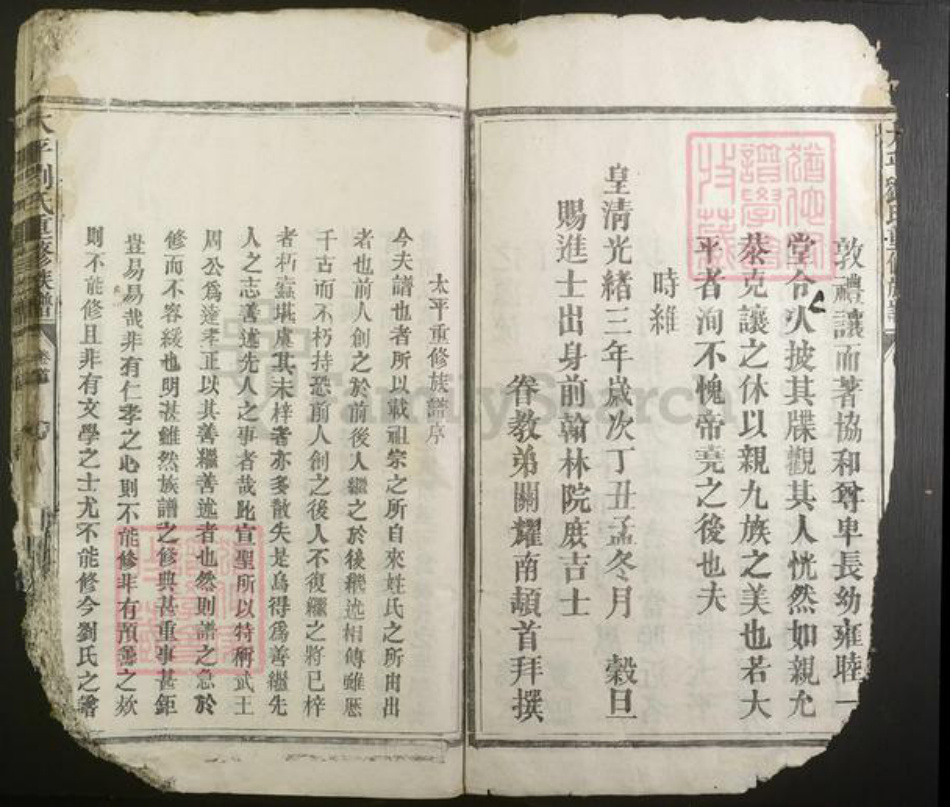 敦禮讓而著協和尊卑長幼雍睦一
堂今火披其牒觀其人恍然如親允
恭克讓之休以親九族之美也若大
平者洵不愧帝堯之後也夫
時維
皇清光緒三年歲次丁丑孟冬月 穀旦
賜進士出身前翰林院庶吉士
眷教弟關耀南頓首拜撰
太平重修族譜序
今夫譜也者所以載祖宗之所自來姓氏之所由出
者也前人創之於前後人繼之於後稱述相傳雖歷
千古而不朽持恐前人創之後人不復繼之將已梓
者朽蠹堪虞其未梓者亦多散失是烏得爲善繼先
人之志善述先人之事者哉此宣聖所以特稱武王
周公爲達孝正以其善繼善述者也然則譜之急於
修而不容緩也明甚雖然族譜之修典甚重事甚鉅
豈易易哉非有仁孝之心則不能修非有預籌之欸
則不能修且非有文學之士尤不能修今劉氏之譜
太平劉氏重修族譜
卷首
FamilySearch